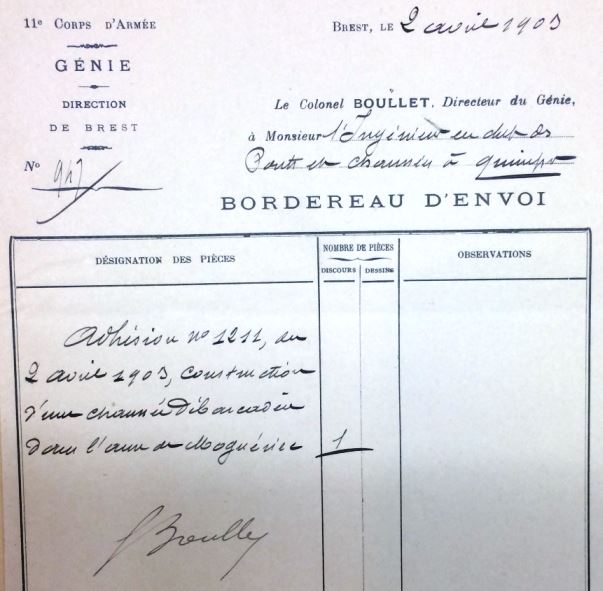 11e CORPS D'ARMÉE
GÉNIE
DIRECTION
DE BREST
No 917
BREST, LE 2 avril 1903
Le Colonel BOULLET, Directeur du Génie,
à Monsieur l'Ingénieur en chef des
Ponts et chaussées à Quimper
BORDEREAU D'ENVOI
DÉSIGNATION DES PIÈCES
NOMBRE DE PIÈCES
DISCOURS DESSINS
OBSERVATIONS
Adhésion no 1211, du
2 avril 1903, construction
d'une chaussée débarcadère
dans l'anse de Moguériec 1
Boullet